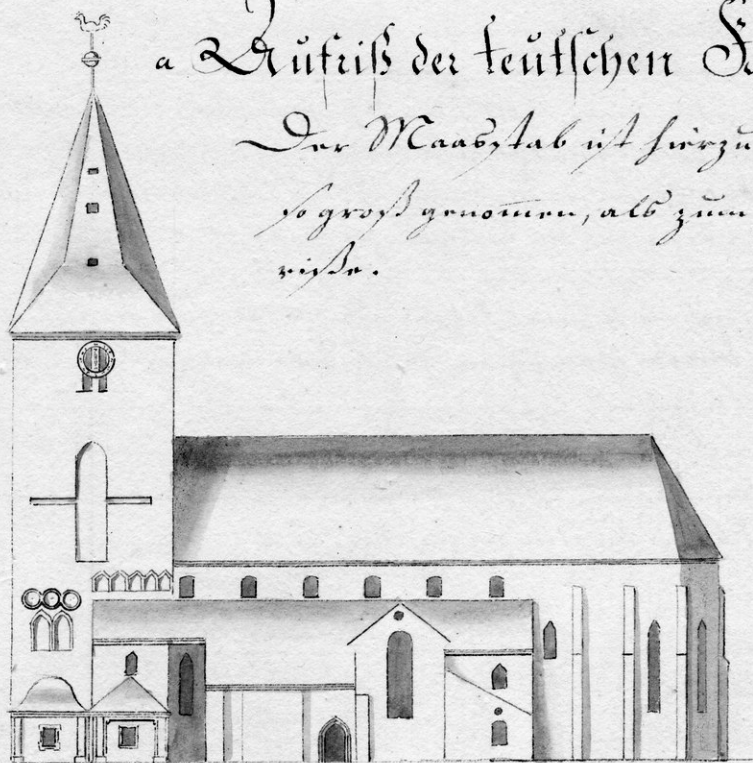 a Aufriß der teutschen
Der Maasstab ist hierzu
so groß genommen, als zum
riße.